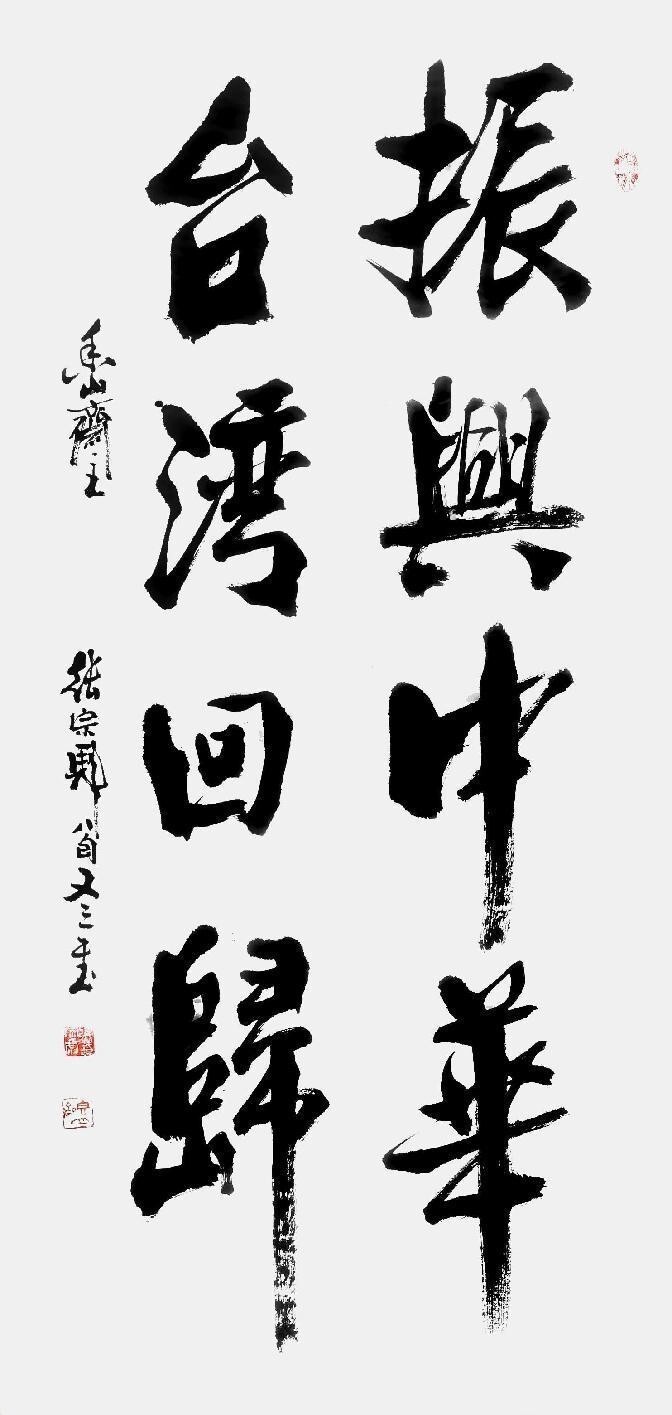 振興中華
台湾回歸
香山齋主
張宗彪八旬又三書